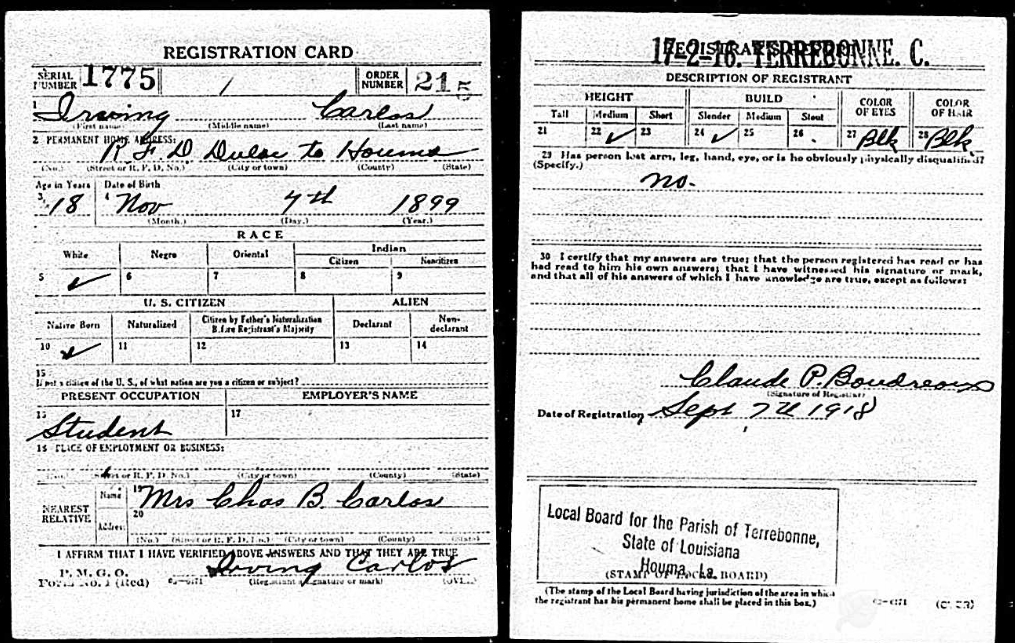 REGISTRATION CARD
SERIAL NUMBER 1775 ORDER NUMBER 215
1 Irving Carlos
(First name) (Middle name) (Last name)
2 PERMANENT HOME ADDRESS:
R F D Dulac to Houma
(No.) (Street or R. F. D. No.) (City or town) (County) (State)
Age in Years Date of Birth
3 18 4 Nov 7th 1899
(Month.) (Day.) (Year.)
RACE
White Negro Oriental Indian
Citizen Noncitizen
5 ✓ 6 7 8 9
U. S. CITIZEN ALIEN
Native Born Naturalized Citizen by Father's Naturalization Before Registrant's Majority Declarant Non-declarant
10 ✓ 11 12 13 14
15
If not a citizen of the U. S., of what nation are you a citizen or subject?
PRESENT OCCUPATION EMPLOYER'S NAME
Student 17
PLACE OF EMPLOYMENT OR BUSINESS:
(No.) (Street or R. F. D. No.) (City or town) (County) (State)
NEAREST RELATIVE Name 19 Mrs Chas B. Carlos
Address 20
(No.) (Street or R. F. D. No.) (City or town) (County) (State)
I AFFIRM THAT I HAVE VERIFIED ABOVE ANSWERS AND THAT THEY ARE TRUE
P. M. G. O.
Form No. 1 (Red) 03—6171 Irving Carlos
(Registrant's signature or mark) (OVER)
REGISTRAR'S REPORT
17-2-16. TERREBONNE. C.
DESCRIPTION OF REGISTRANT
HEIGHT BUILD COLOR OF EYES COLOR OF HAIR
Tall Medium Short Slender Medium Stout
21 22 ✓ 23 24 ✓ 25 26 27 Blk 28 Blk
29 Has person lost arm, leg, hand, eye, or is he obviously physically disqualified?
(Specify.)
no.
30 I certify that my answers are true; that the person registered has read or has
had read to him his own answers; that I have witnessed his signature or mark,
and that all of his answers of which I have knowledge are true, except as follows:
Claude P. Boudreaux
(Signature of Registrar)
Date of Registration Sept 7th 1918
Local Board for the Parish of Terrebonne,
State of Louisiana
Houma, La.
(STAMP OF LOCAL BOARD)
(The stamp of the Local Board having jurisdiction of the area in which
the registrant has his permanent home shall be placed in this box.)
03—6171 (OVER)